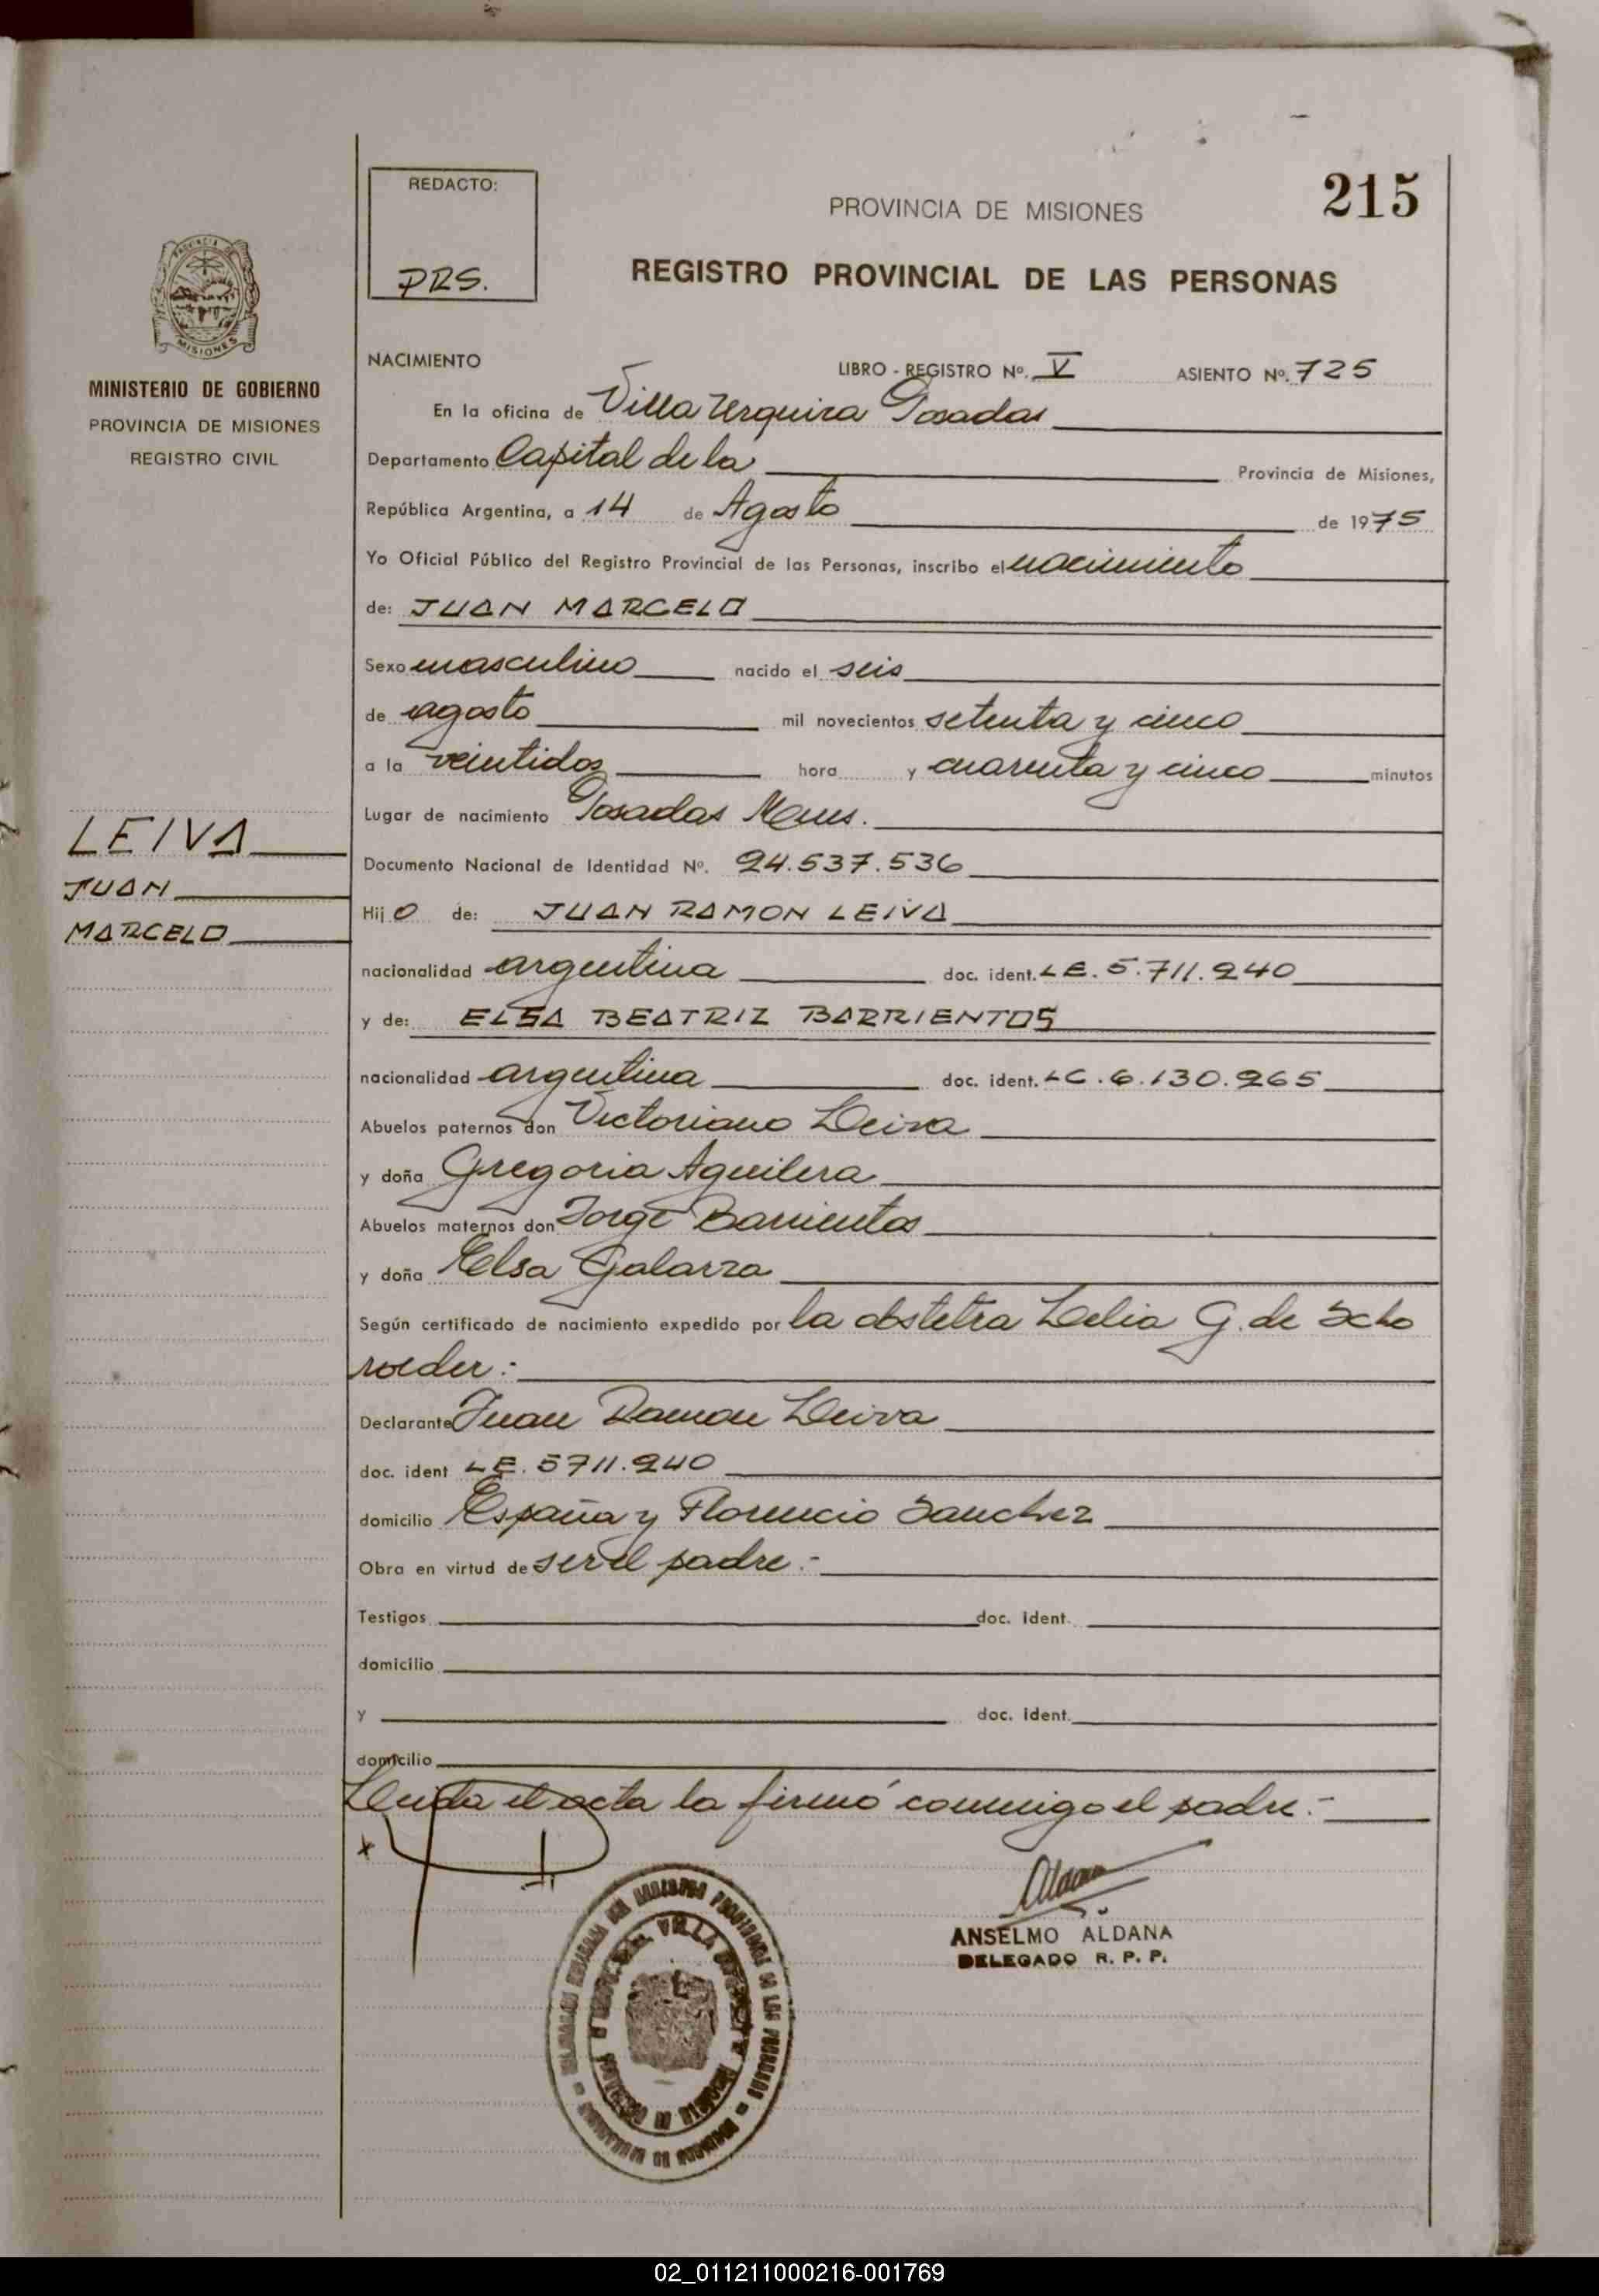 215
REDACTO:
PRS.
PROVINCIA DE MISIONES
REGISTRO PROVINCIAL DE LAS PERSONAS
PROVINCIA DE
MISIONES
MINISTERIO DE GOBIERNO
PROVINCIA DE MISIONES
REGISTRO CIVIL
NACIMIENTO LIBRO - REGISTRO Nº. V ASIENTO Nº. 725
En la oficina de Villa Urquiza Posadas
Departamento Capital de la Provincia de Misiones,
República Argentina, a 14 de Agosto de 1975
Yo Oficial Público del Registro Provincial de las Personas, inscribo el nacimiento
de: JUAN MARCELO
Sexo masculino nacido el seis
de agosto mil novecientos setenta y cinco
a la veintidos hora y cuarenta y cinco minutos
Lugar de nacimiento Posadas Mnes.
LEIVA
JUAN
MARCELO
Documento Nacional de Identidad Nº. 24.537.536
Hijo de: JUAN RAMON LEIVA
nacionalidad argentina doc. ident. LE. 5.711.240
y de: ELSA BEATRIZ BARRIENTOS
nacionalidad argentina doc. ident. LC. 6.130.265
Abuelos paternos don Victoriano Leiva
y doña Gregoria Aguilera
Abuelos maternos don Jorge Barrientos
y doña Elsa Galarza
Según certificado de nacimiento expedido por la obstetra Lelia G. de Scho
roeder:-
Declarante Juan Ramon Leiva
doc. ident LE. 5711.240
domicilio España y Florencio Sanchez
Obra en virtud de ser el padre.-
Testigos doc. ident.
domicilio
y doc. ident.
domicilio
Leida el acta la firmó conmigo el padre.-
x
Aldana
ANSELMO ALDANA
DELEGADO R. P. P.
VILLA
02_011211000216-001769